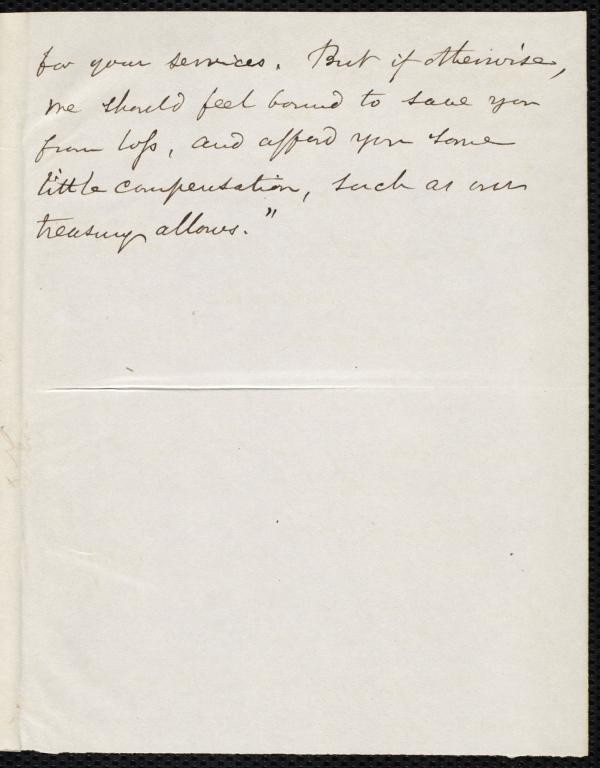 for your services. But if otherwise,
we should feel bound to save you
from loss, and afford you some
little compensation, such as our
treasury allows."